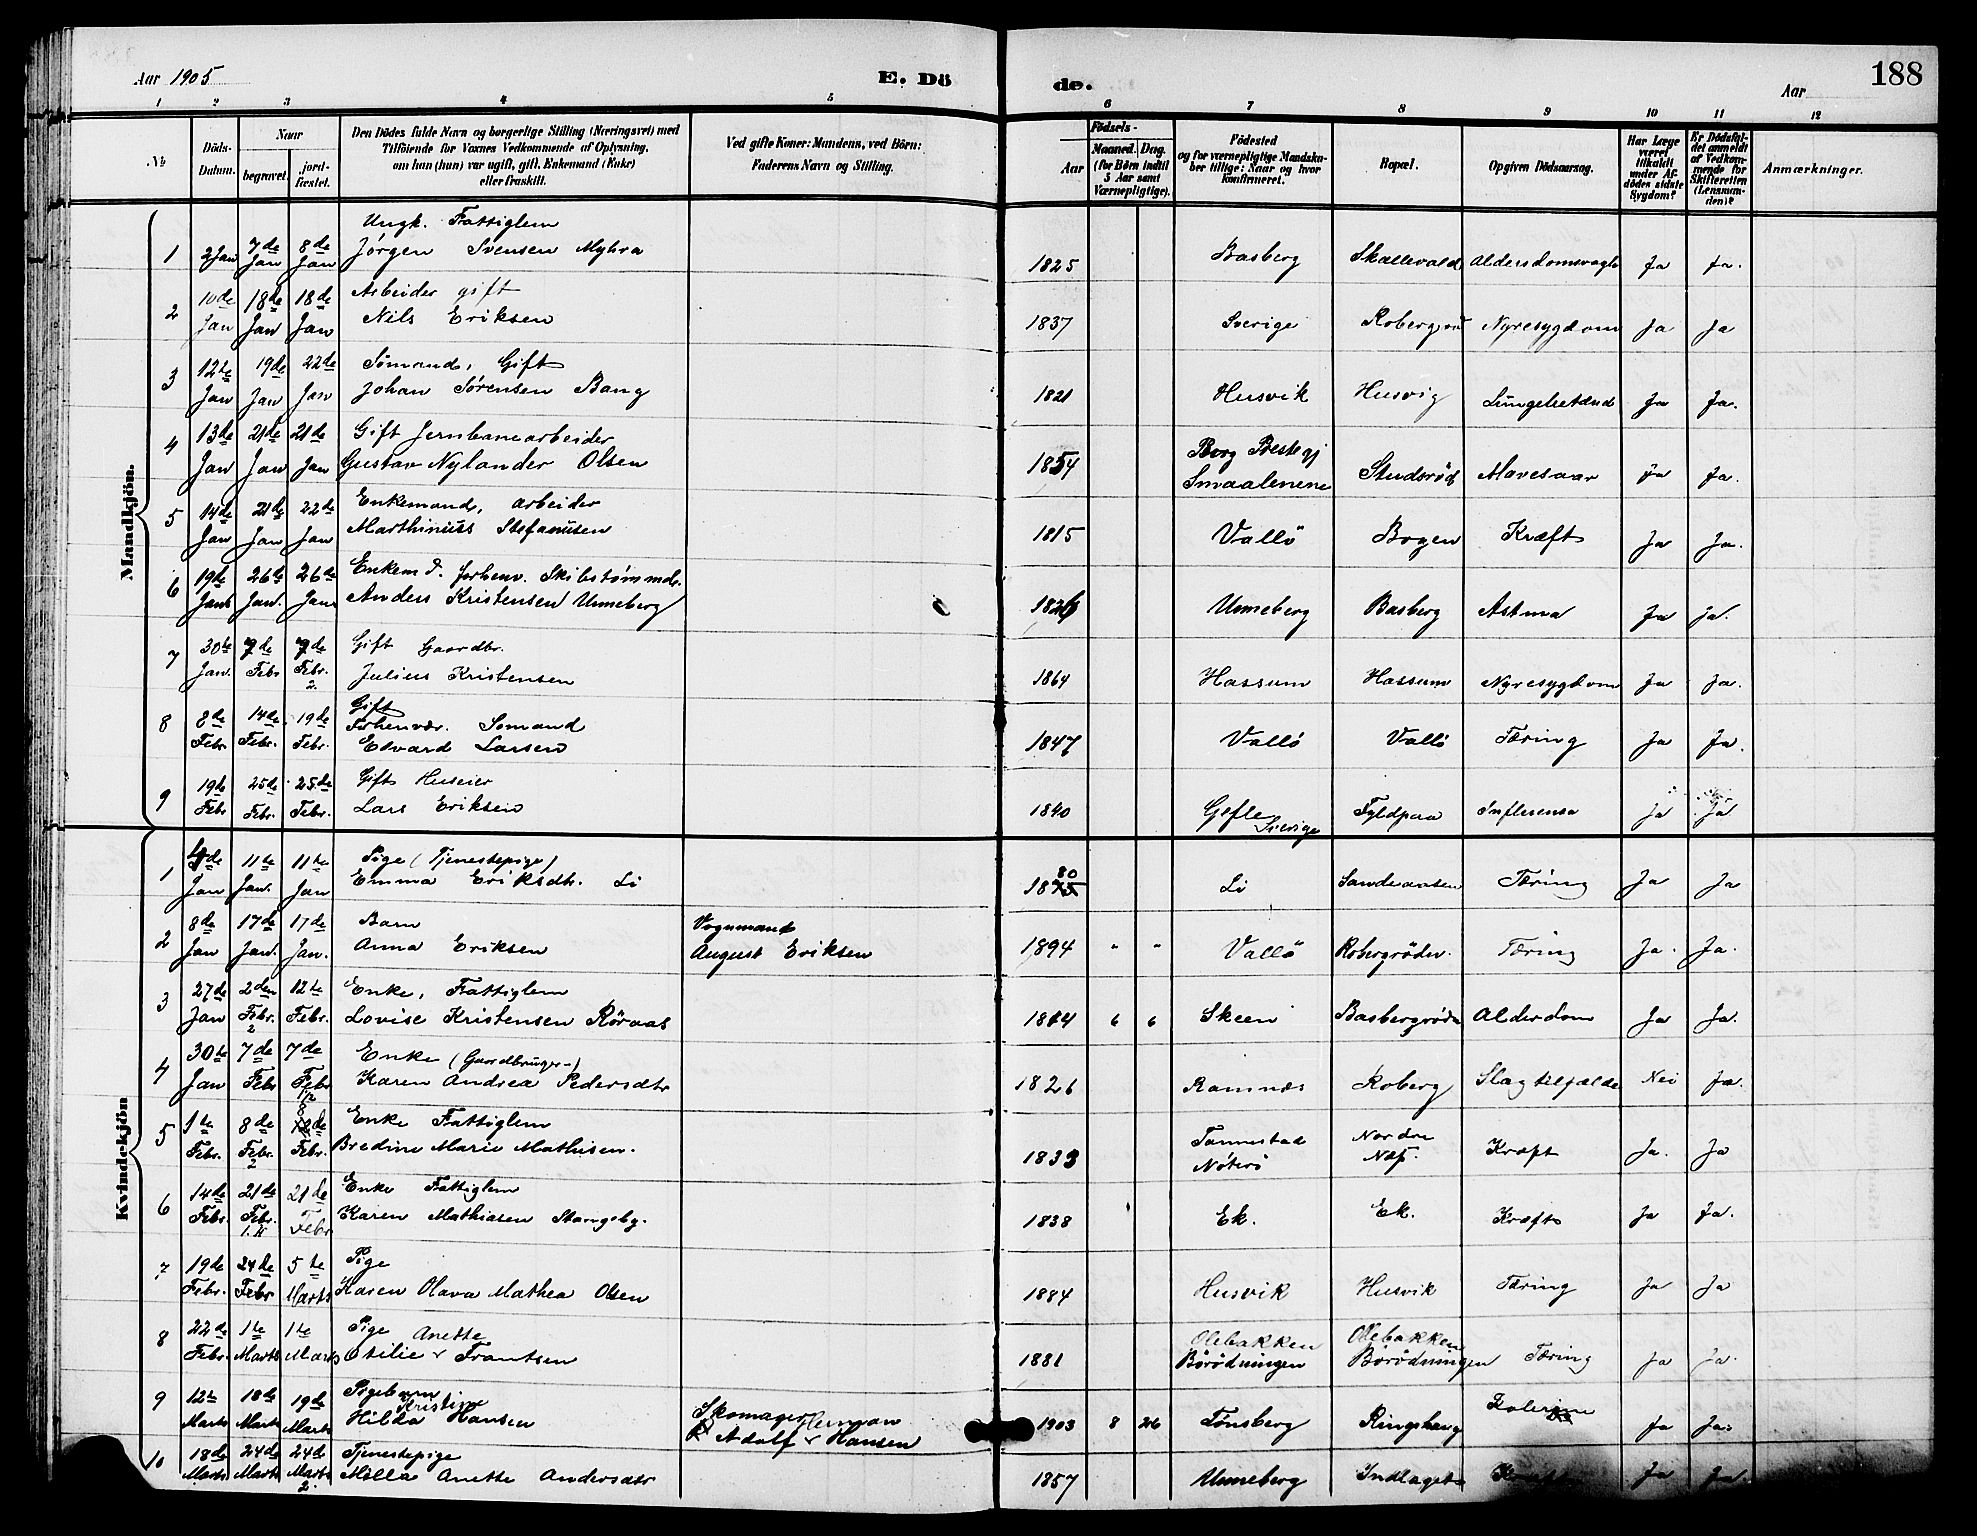 Aar 1905 E. Dö de. Aar 188
1 2 3 4 5 6 7 8 9 10 11 12
№ Döds-Datum. Naar begravet. jordfæstet. Den Dödes fulde Navn og borgerlige Stilling (Næringsvei) med Tilföiende for Voxnes Vedkommende af Oplysning, om han (hun) var ugift, gift, Enkemand (Enke) eller fraskilt. Ved gifte Koner: Mandens, ved Börn: Faderens Navn og Stilling. Födsels- Aar Maaned. Dag. (for Börn indtil 5 Aar samt Værnepligtige). Födested og for værnepligtige Mandskaber tillige: Naar og hvor konfirmeret. Bopæl. Opgiven Dödsaarsag. Har Læge været tilkaldt under Afdödes sidste Sygdom? Er Dödsfaldet anmeldt af Vedkommende for Skifteretten (Lensmanden)? Anmærkninger.
Mandkjön.
Ungk. Fattiglem
1 2 Jan 7de Jan 8de Jan Jørgen Svensen Myhra 1825 Basberg Skallevold Ja Ja.
Arbeider gift
2 10de Jan 18de Jan 18de Jan Nils Eriksen 1837 Sverige Nyresygdom Ja Ja
Sømand, Gift
3 12te Jan 19de Jan 22de Jan Johan Sørensen Bang 1821 Husvik Husvig Ja Ja.
Gift Jernbanearbeider
4 13de Jan 21de Jan 21de Jan Gustav Nylander Olsen 1854 Borg Prestegj Smaalenene Studsrød Mavesaar Ja Ja.
Enkemand, arbeider
5 14de Jan 21de Jan 22de Jan Marthinius Stefanusen 1815 Vallö Bogen Kræft Ja Ja.
Enkemd. forhenv. Skibstømmdr.
6 19de Jan 26de Jan. 26de Jan Anders Kristensen Unneberg 1826 Unneberg Basberg Astma Ja Ja.
Gift Gaardbr.
7 30te Jan. 7de Febr 7de Febr. 2. Julius Kristensen 1864 Hassum Hassum Nyresygdom Ja Ja.
Gift
Forhenvær. Sømand
8 8de Febr. 14de Febr. 19de Febr. Edvard Larsen 1847 Vallö Vallö Tæring Ja Ja.
Gift Huseier
9 19de Febr 25de Febr. 25de Febr. Lars Eriksen 1840 Gefle Sverige Fyldpaa Influensa Ja Ja
Kvindekjön
Pige (Tjenestepige)
1 Jan 11te Jan. 11te Jan Emma Eriksdtr. Li 1875 80 Li Sandeaasen Tæring Ja Ja
Barn Vognmand
2 8de Jan 17de Jan. 17de Jan. Anna Eriksen August Eriksen 1894 " " Vallö Robergröden. Tæring Ja. Ja.
Enke, Fattiglem
3 27de Jan 2den Febr. 2 12te Febr. Lovise Kristensen Röraas 1814 6 6 Skeen Alderdom Ja Ja.
Enke (Gaardbruger-)
4 30te Jan 7de Febr 7de Febr 1/2 Karen Andrea Pedersdtr 1826 Ramnæs Roberg Slagtilfælde Nei Ja.
Enke Fattiglem
5 1te Febr. 8de Febr. 2 8 de Febr. Bredine Marie Mathisen. 1833 Nöterö Nordre Næs. Kræft Ja. Ja
Enke Fattiglem
6 14de Febr. 21de Febr. 21de Febr Karen Mathiasen Stangeby. 1838 Ek. Ek. Kræft Ja Ja.
Pige
7 19de Febr. 24de Febr 5te Marts Karen Olava Mathea Olsen 1884 Husvik Husvik Tæring Ja Ja
Pige Anette
8 22de Febr. 1te Marts 1te Marts Otilie v Frantsen 1881 Olebakken Börödningen Olebakken Börödningen Tæring Ja Ja.
Pigebarn Kristine
9 12te Marts 18de Marts 19de Marts Hilda Hansen Skomager Herman Adolf v Hansen 1903 8 26 Tønsberg Ringshaug Kolerine Ja Ja.
Tjenestepige
10 18de Marts 24de Marts 24de Marts 2. Milla Anette Andersdtr 1857 Unneberg Indlaget Kræft Ja Ja.